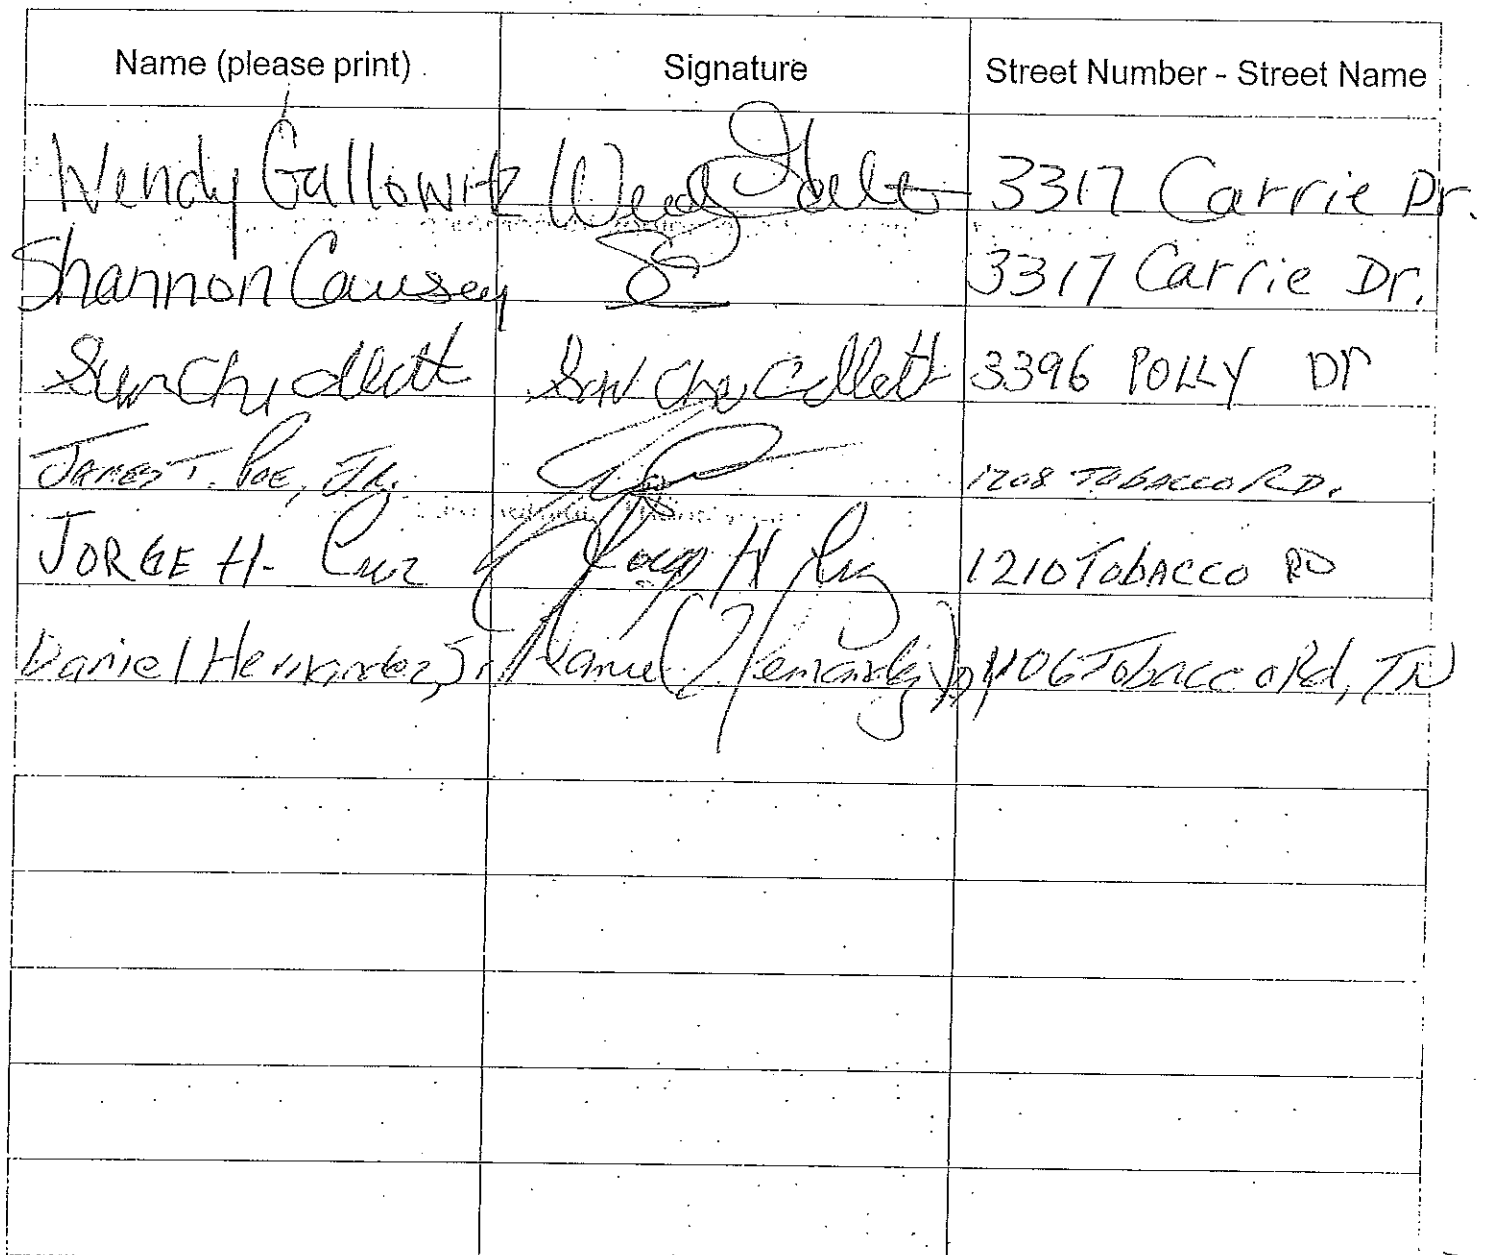 Name (please print) Signature Street Number - Street Name
Wendy Gallowitz Wendy 3317 Carrie Dr.
Shannon Causey 3317 Carrie Dr.
Sun Chu Collett Sun Chu Collett 3396 POLLY Dr
James T. Poe, Jr. 1208 Tobacco RD.
JORGE H. Cruz Jorge H Cruz 1210 Tobacco RD
Daniel Hernandez, Jr. Daniel Hernandez Jr 1106 Tobacco Rd, TN